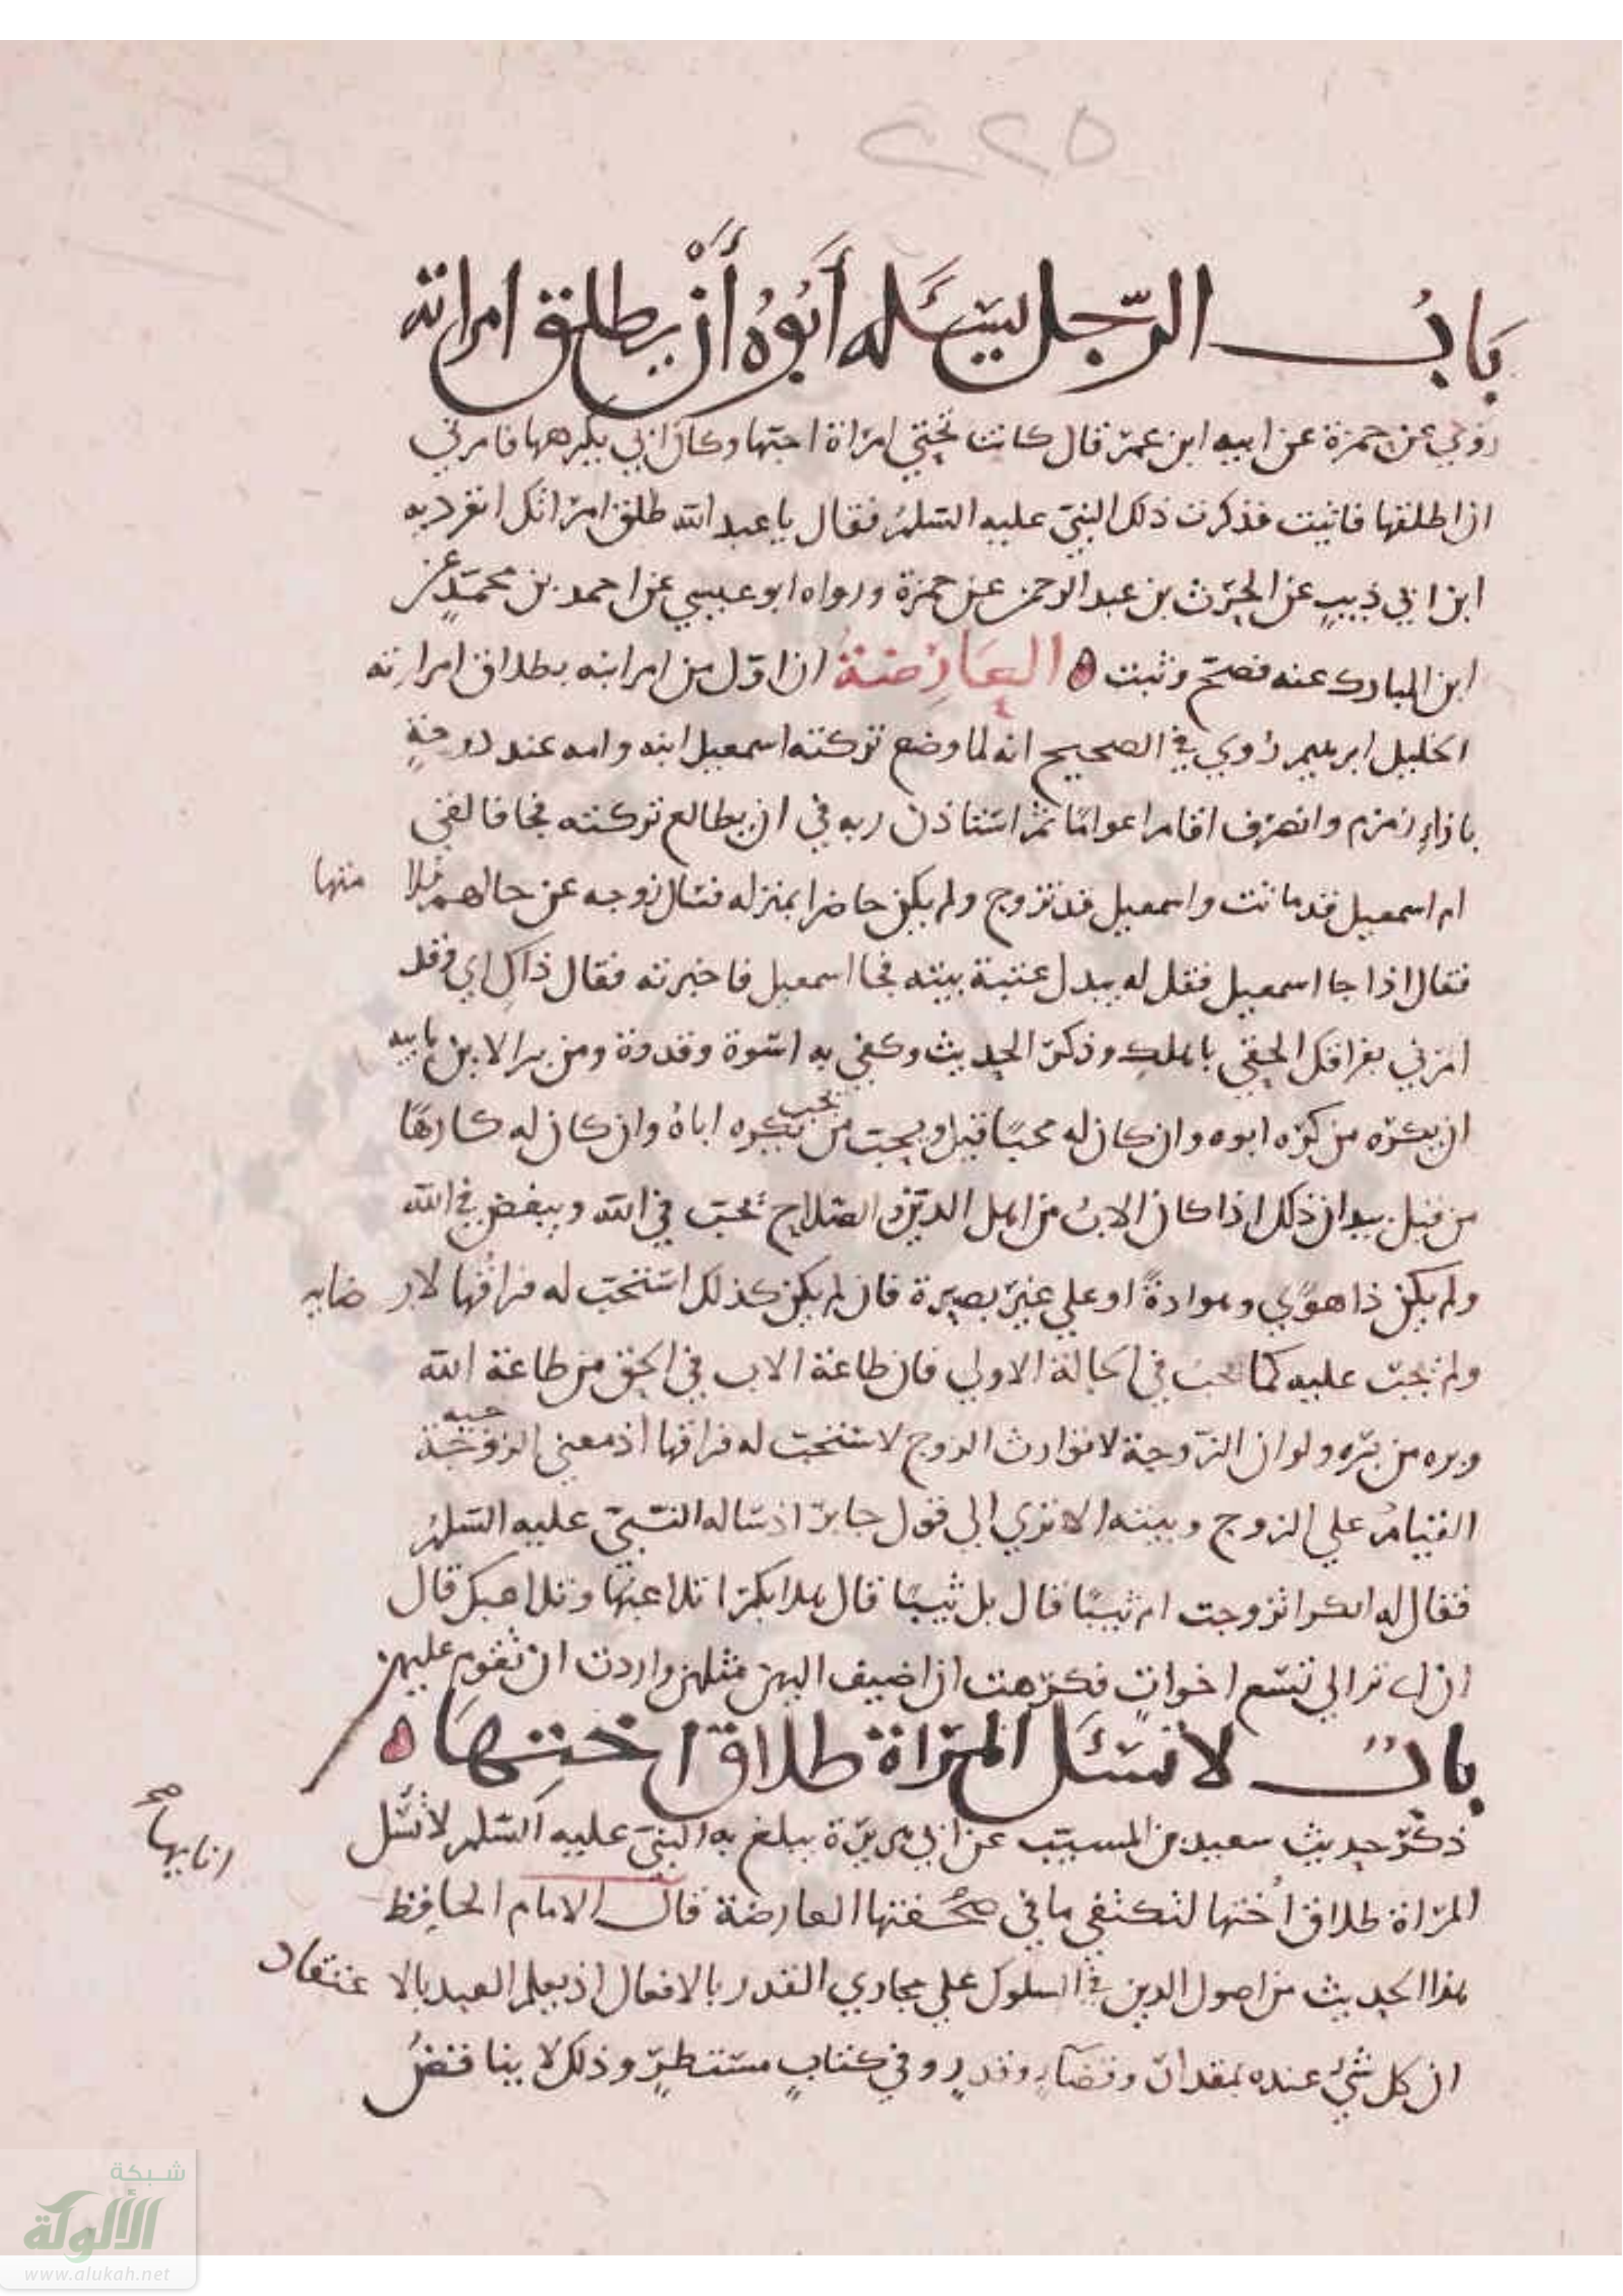 ٢٢٥
بَابُ الرّجل يسئَله أَبُوُه أَنْ يطلق امراته
رُوي عن حمزة عن ابيه ابن عمر قال كانت تحتي امراة احبّها وكان ابي يكرهها فامرني
ان اطلقها فابيت فذكرت ذلك النبيّ عليه السّلمُ فقال يا عبد الله طلق امراتك انفرد به
ابن ابي ذيبٍ عن الحرث بن عبد الرحمن عن حمزة ورواه ابو عيسي عن احمد بن محمّدٍ عن
ابن المبارك عنه فصحّ وثبت ه العَارِضةُ ان اوّل من امر ابنه بطلاق امراته
الخليل ابرهيم رُوي في الصحيح انه لما وضع تركته اسمعيل ابنه وامه عند دوحةٍ
بازاءِ زمزم وانصرف اقام اعوامًا ثم استاذن ربه في ان يطالع تركته فجا فالفي
ام اسمعيل قد ماتت واسمعيل قد تزوج ولم يكن حاضرا بمنزله فسال زوجه عن حالهم فلا منها
فقال اذا جا اسمعيل فقل له يبدل عتبة بيته فجا اسمعيل فاخبرته فقال ذاكِ ابي وقد
امرني بفراقك الحقي باهلك وذكر الحديث وكفي به اسوة وقدوة ومن بر الابن بابيه
ان يكرّه من كرَه ابوه وان كان له محبًا قبل ويحبّ من يحب يكره اباهُ وان كان له كارهًا
من قبل بيد ان ذلك اذا كان الابُ من اهل الدين والصّلاح يحبّ في الله ويبغض في الله
ولم يكن ذا هوًي وموادةً او علي غير بصيرة فان لم يكن كذلك استحبّ له فراقُها لارضايه
ولم يجبّ عليه كما يجب في الحالة الاولي فان طاعة الاب في الحق من طاعة الله
وبره من برّه ولو ان الزّوجة لا توارث الزوج لاستحبّ له فراقها اذ معني الزوجية
القيامُ علي الزوج وبيته الا تري الي قول جابرّ اذ ساله النّبيّ عليه السّلمُ
فقال له ابكرا تزوجت ام ثيبًا قال بل ثيبًا قال هلا بكرًا تلاعبُها وتلاعبك قال
ان ابي ترا لي تسع اخواتٍ فكرهت ان اضيف اليهن مثلهن واردت ان تقوم عليهن
بابٌ لا تسئَل المرَاة طلاق اختِهَا ه
ذكرّ حديث سعيد بن المسيّب عن ابي هريرّة يبلغ به النبيّ عليه السّلم لا تسَّل
المرّاة طلاق اُختها لتكتفي ما في صحُفتها العارضة قال الامام الحافِظ
انابها صح
هذا الحديث من اصول الدين في السلوك علي مجاري القدر بالافعال اذ يعلم العبد بالاعتقاد
ان كل شيْ عنده بمقدارٍ وقضآءٍ وقدرٍ وفي كتابٍ مستطرٍ وذلك لا يناقضُ
شبكة
الألوكة
www.alukah.net